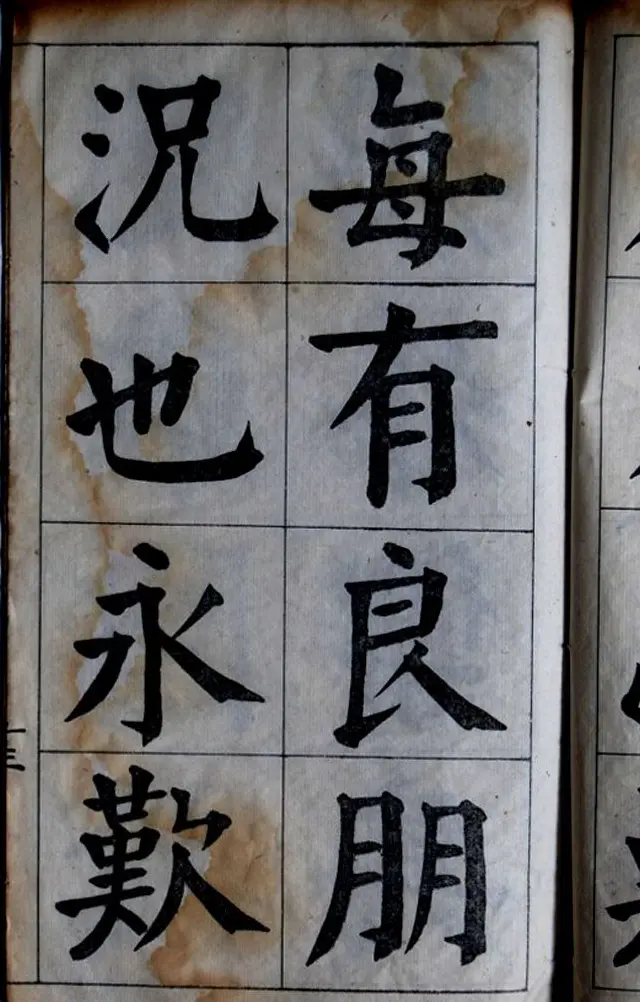 每有良朋
況也永歎